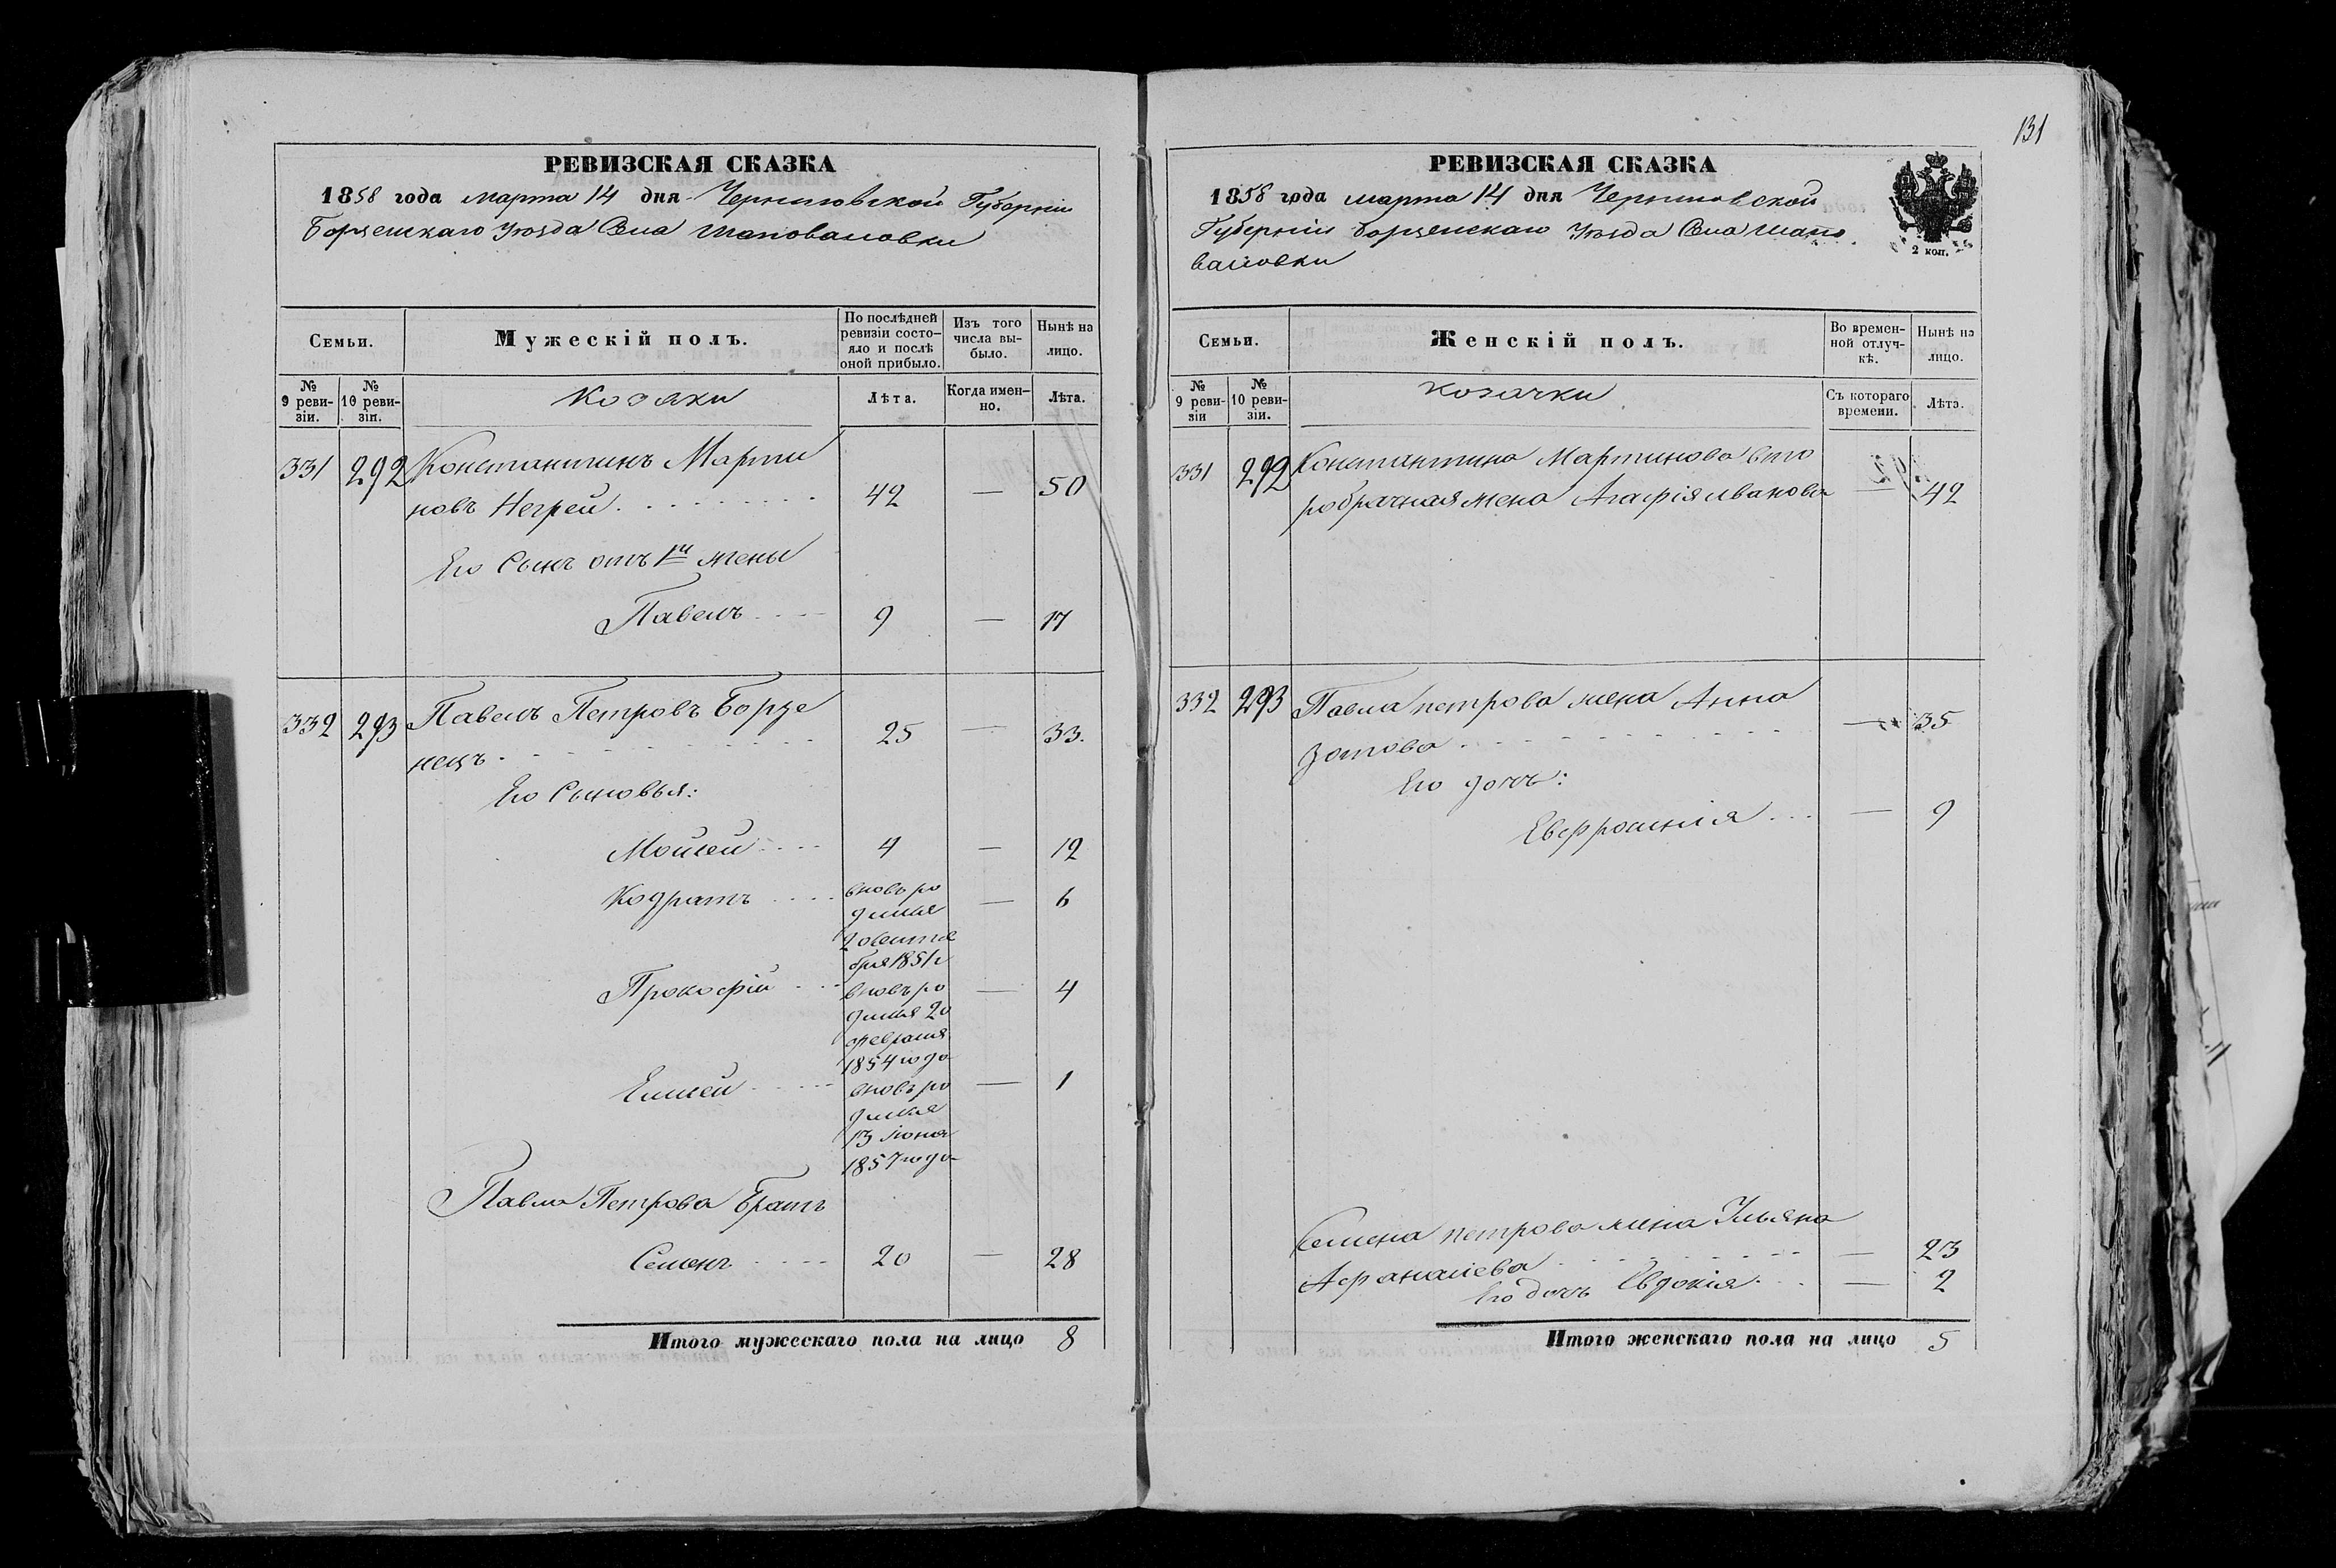 РЕВИЗСКАЯ СКАЗКА
1858 года марта 14 дня Черниговской Губерніи
Борзенскаго Уѣзда Села Шаповаловки
Семьи.
Мужескій полъ.
По послѣдней ревизіи состояло и послѣ оной прибыло.
Изъ того числа выбыло.
Нынѣ на лицо.
№ 9 ревизіи.
№ 10 ревизіи.
Козаки
Лѣта.
Когда именно.
Лѣта.
331 292 Константинъ Марти
новъ Негрей 42 — 50
Его Сынъ отъ 1й жены
Павелъ 9 — 17
332 293 Павелъ Петровъ Борзе
нецъ 25 — 33.
Его Сыновья:
Мойсей 4 — 12
Кодратъ вновь ро — 6
дился
бря 1851 г
Прокофій вновь ро — 4
дился 20
февраля
1854 года
Елисей вновь ро — 1
дился
13 іюня
1857 года
Павла Петрова Братъ
Семенъ 20 — 28
Итого мужескаго пола на лицо 8
131
РЕВИЗСКАЯ СКАЗКА
1858 года марта 14 дня Черниговской
Губерніи Борзенскаго Уѣзда Села Шапо
валовки
2 коп.
Семьи.
Женскій полъ.
Во временной отлучкѣ.
Нынѣ на лицо.
№ 9 ревизіи
№ 10 ревизіи.
козачки
Съ котораго времени.
Лѣта.
331 292 Константина Мартинова вто
робрачная жена Агафія Иванова — 42
332 293 Павла петрова жена Анна
Зотова — 35
Его дочь:
Евфросинія — 9
Семена петрова жена Ульяна
Афанасіева — 23
Его дочь Евдокія — 2
Итого женскаго пола на лицо 5